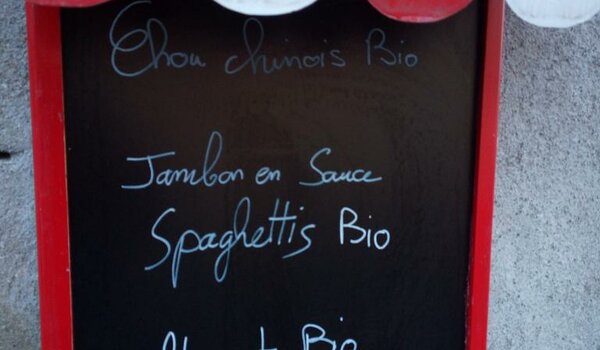 Chou chinois Bio
Jambon en Sauce
Spaghettis Bio
Bio